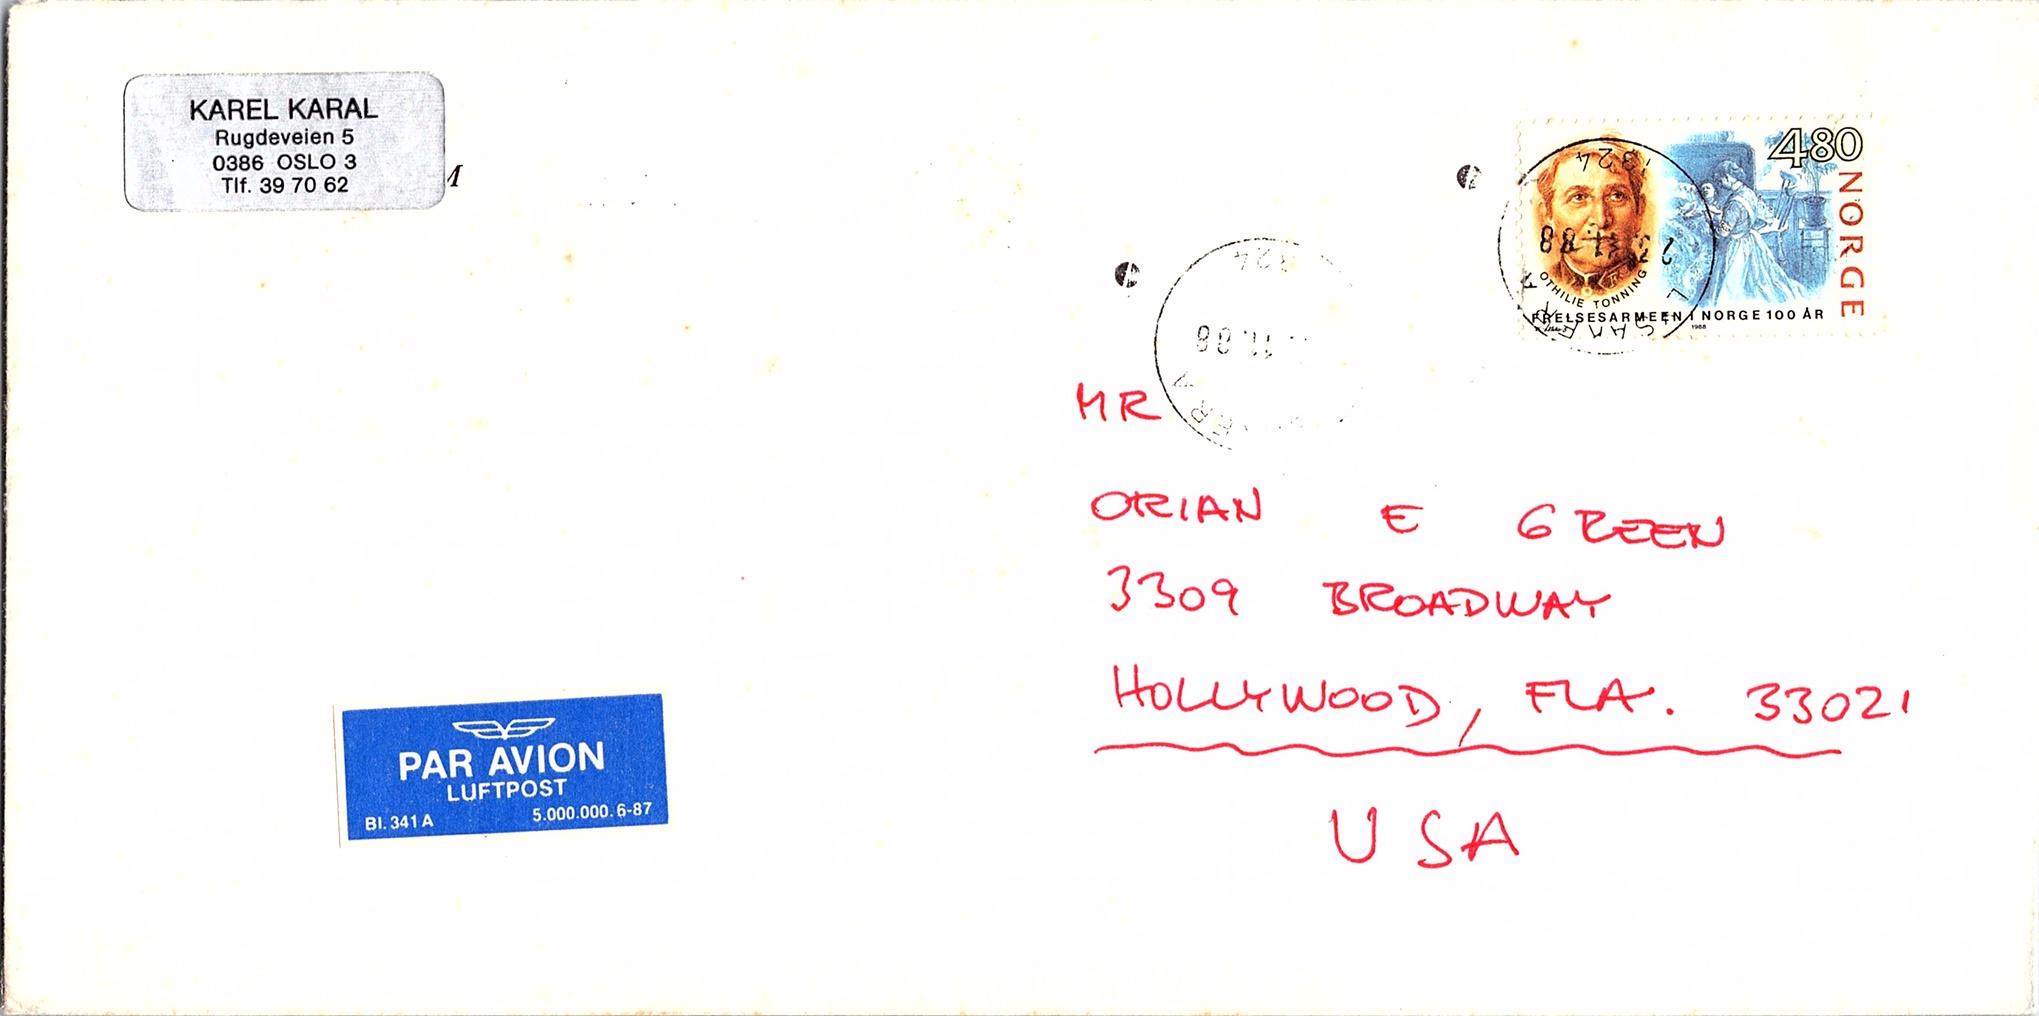 KAREL KARAL
Rugdeveien 5
0386 OSLO 3
Tlf. 39 70 62
480
NORGE
OTHILIE TONNING
FRELSESARMEEN I NORGE 100 ÅR
1988
1324
11.88
1324
11.88
MR
ORIAN E GREEN
3309 BROADWAY
HOLLYWOOD, FLA. 33021
USA
PAR AVION
LUFTPOST
Bl. 341 A 5.000.000. 6-87